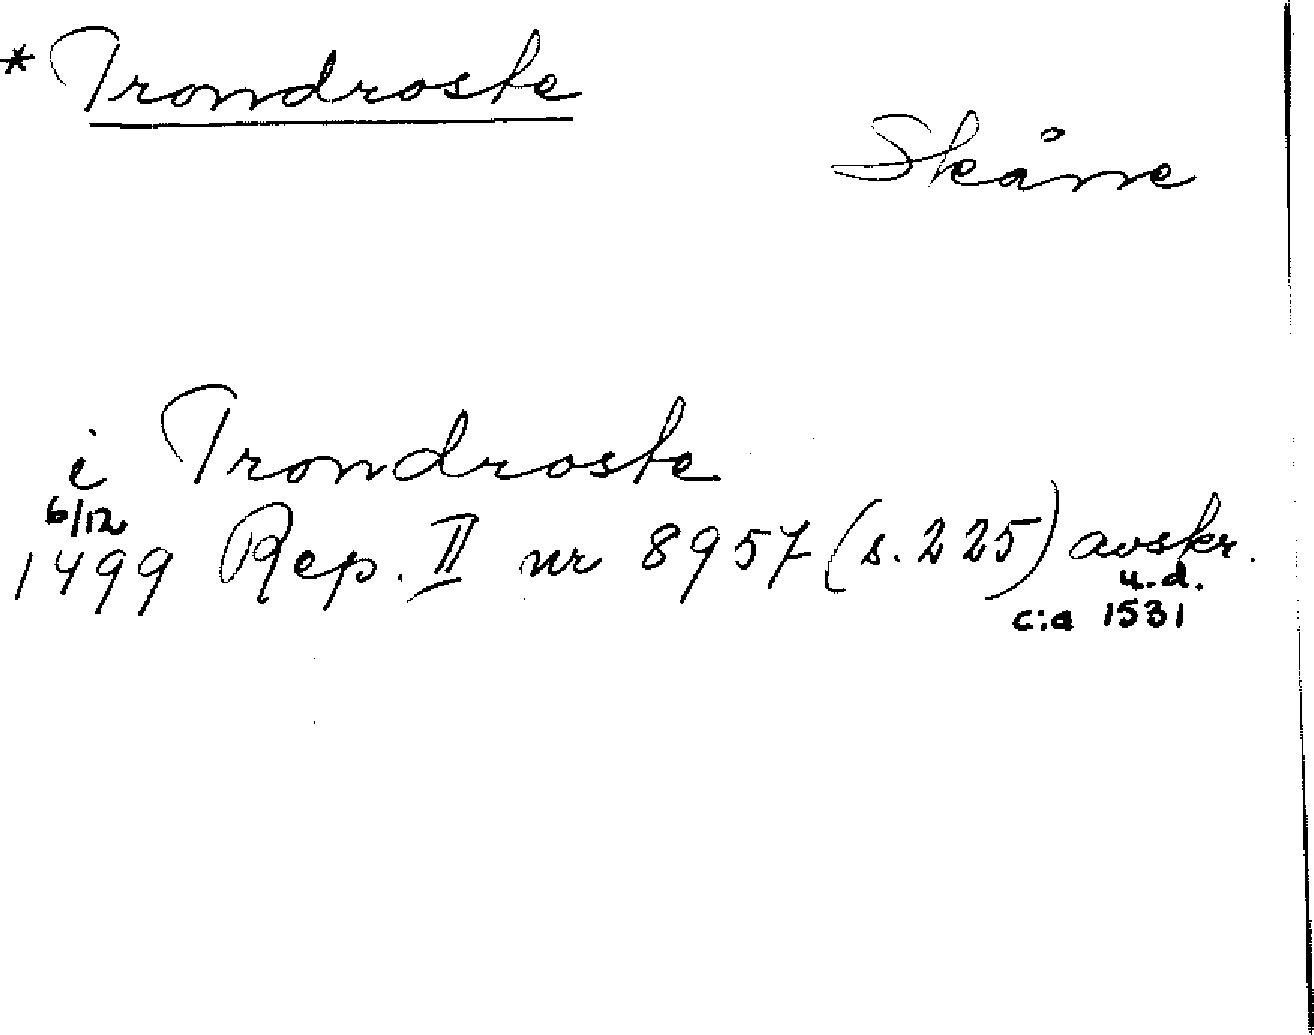 * Trondroste
Skåne
i Trondroste
6/12
1499 Rep. II nr 8957 (s. 225) avskr.
u.d.
c:a 1531